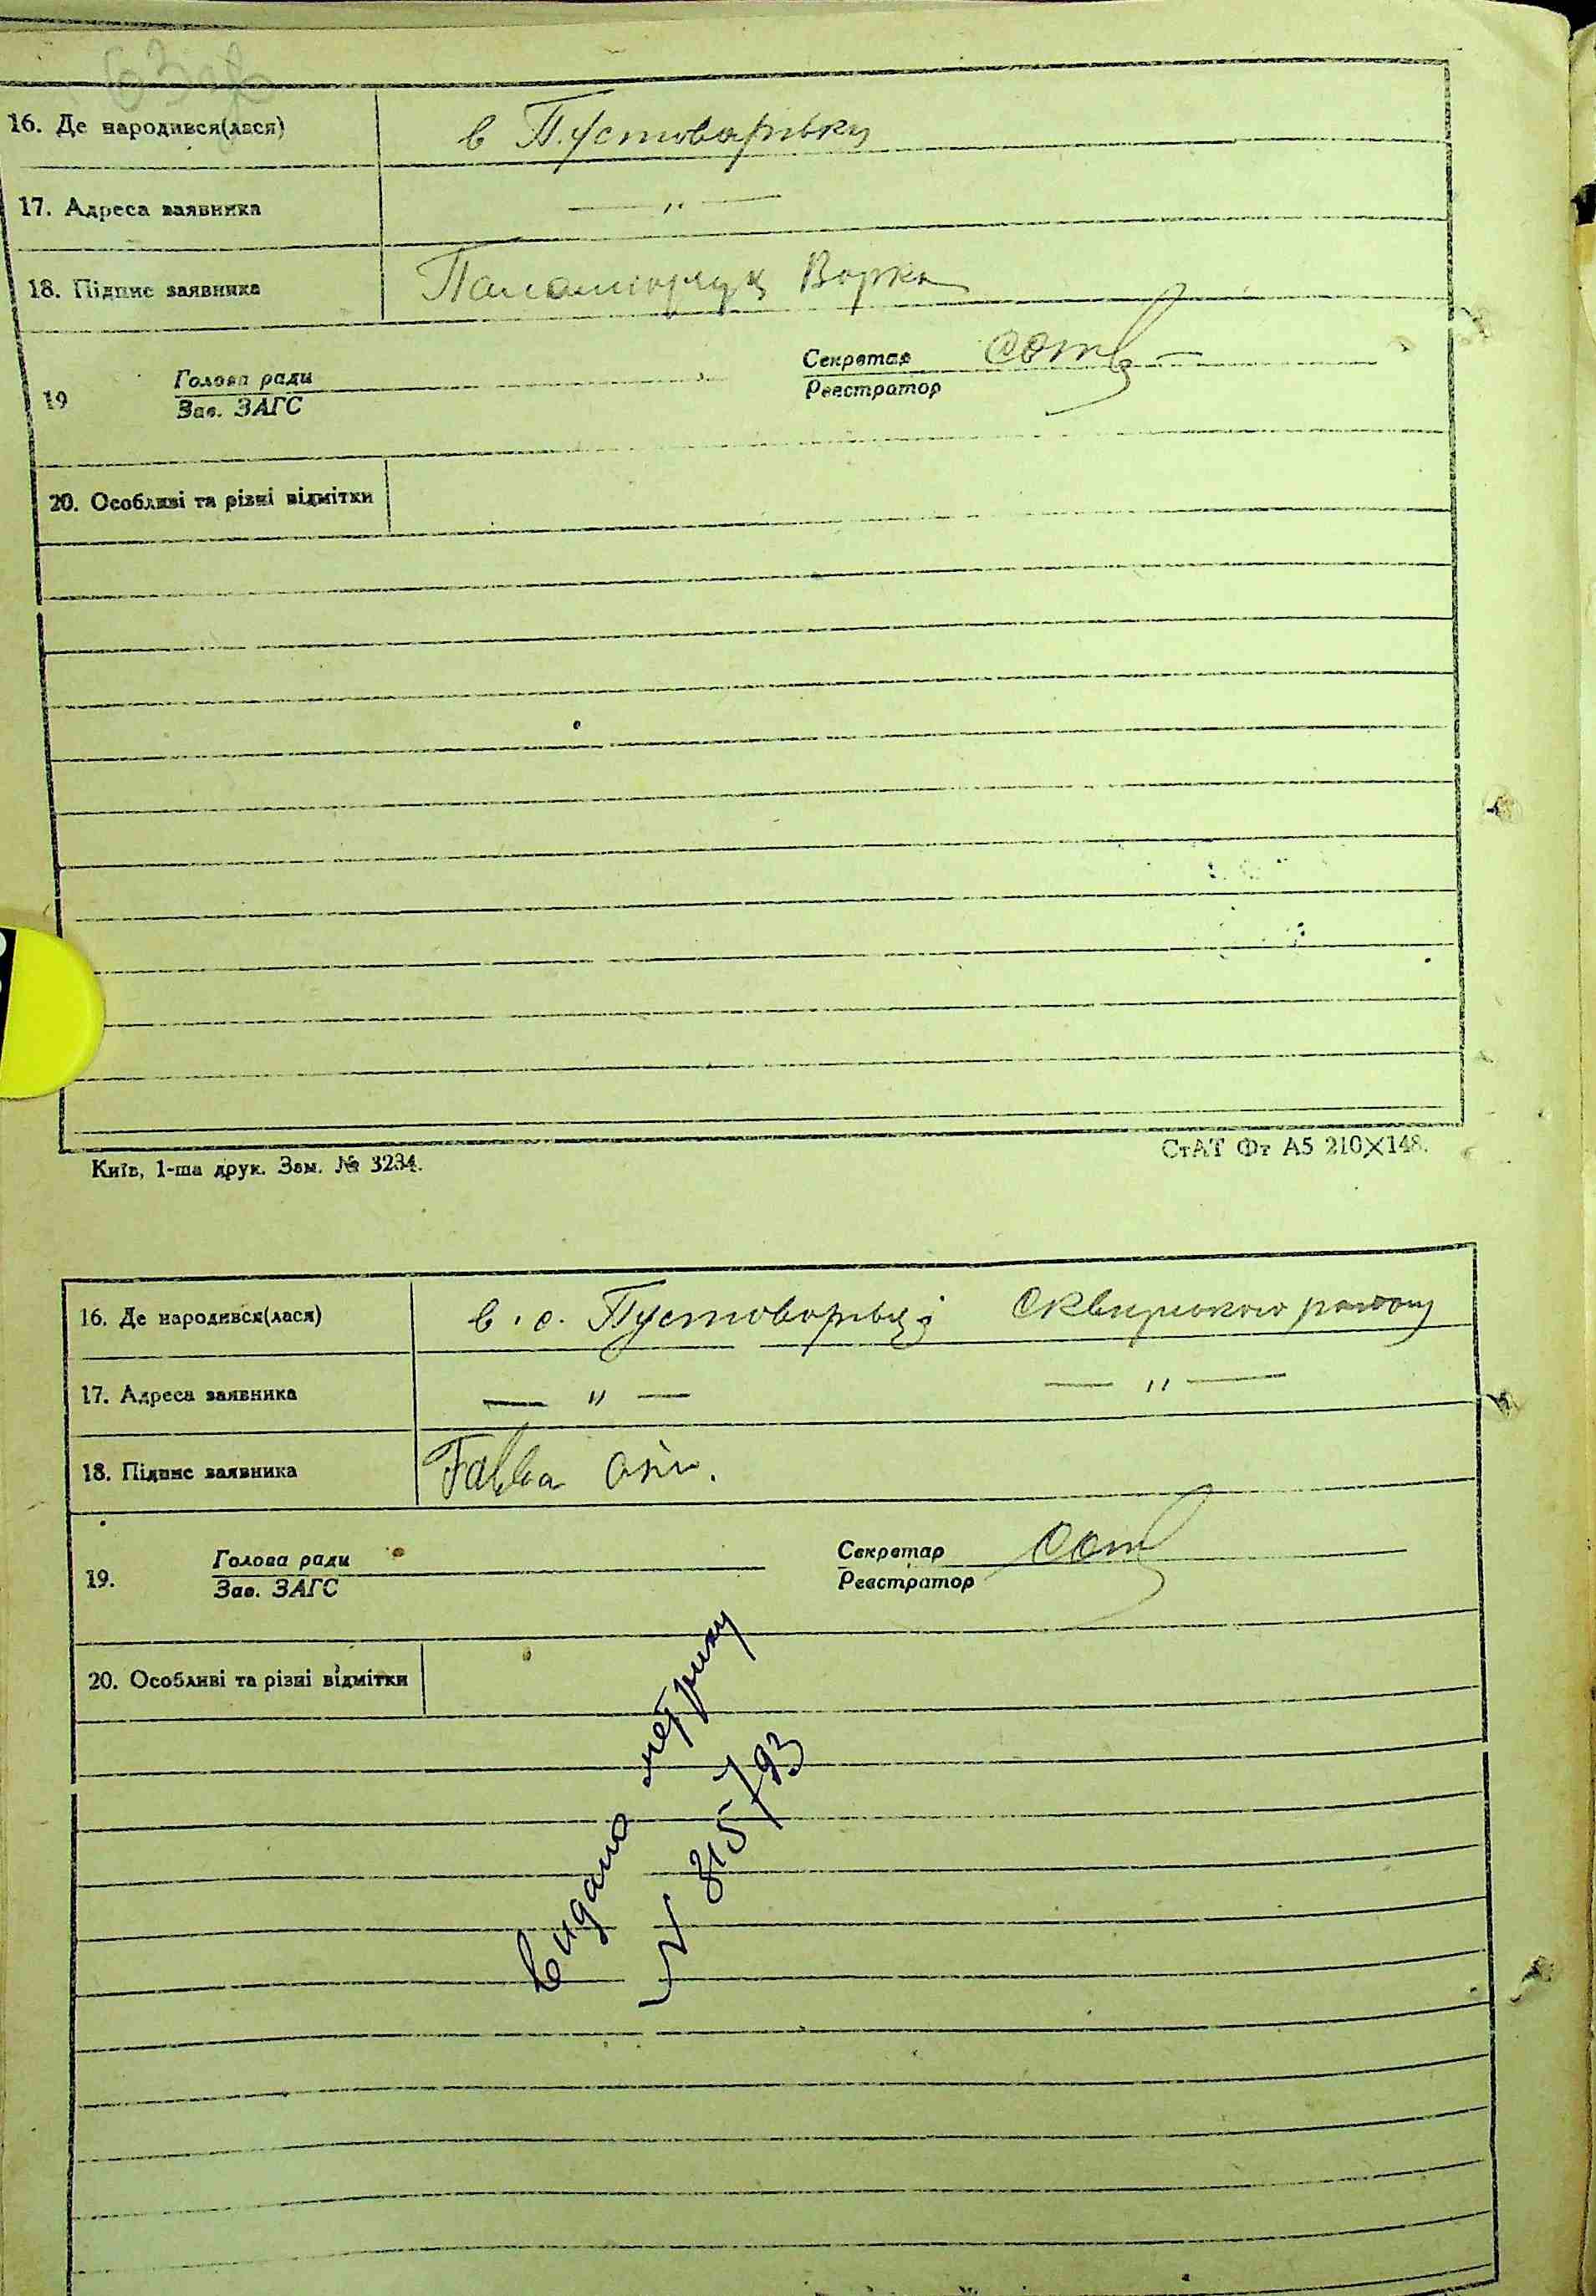 16. Де народився(лася) в Пустоварівку
17. Адреса заявника — " —
18. Підпис заявника Варка
Секретар
Голова ради
Реєстратор
19 Зав. ЗАГС
20. Особливі та різні відмітки
Київ, 1-ша друк. Зам. № 3234. СтАТ Фт А5 210×148.
16. Де народився(лася) в. с. Пустоварівці Сквирського району
17. Адреса заявника — " — — " —
18. Підпис заявника
Голова ради Секретар
19. Зав. ЗАГС Реєстратор
20. Особливі та різні відмітки
видано метрику
N 815/93